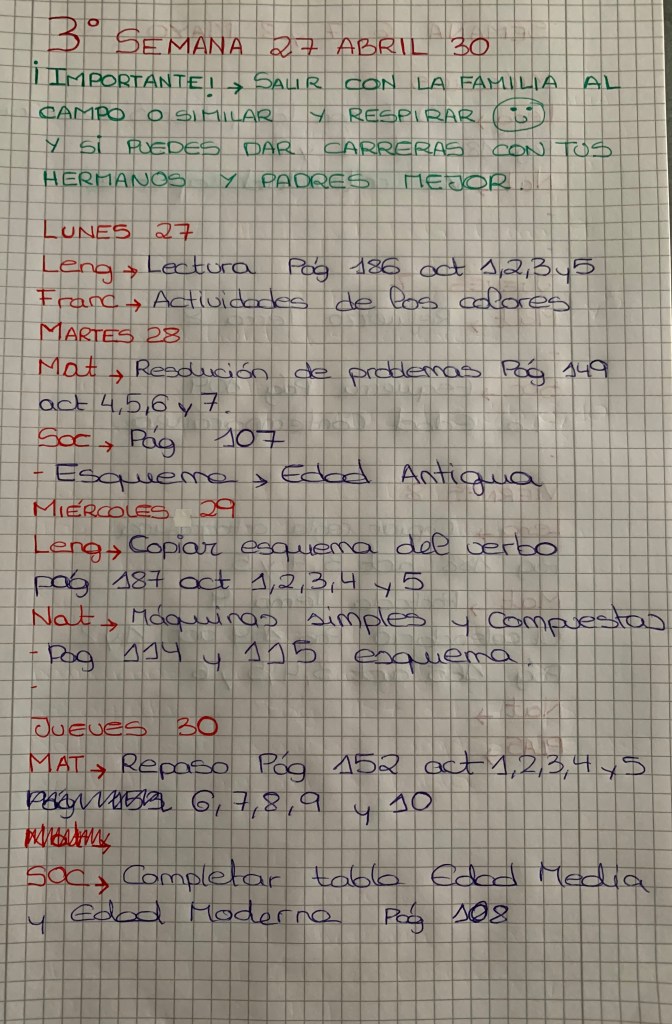 3° SEMANA 27 ABRIL 30
¡IMPORTANTE! → SALIR CON LA FAMILIA AL
CAMPO O SIMILAR Y RESPIRAR
Y SÍ PUEDES DAR CARRERAS CON TUS
HERMANOS Y PADRES MEJOR.
LUNES 27
Leng → Lectura Pág 186 act 1,2,3 y 5
Franc → Actividades de los colores
MARTES 28
Mat → Resolución de problemas Pág 149
act 4,5,6 y 7.
Soc → Pág 107
- Esquema → Edad Antigua
MIÉRCOLES 29
Leng → Copiar esquema del verbo
pág 187 act 1,2,3,4 y 5
Nat → Máquinas simples y compuestas
- Pag 114 y 115 esquema.
-
JUEVES 30
MAT → Repaso Pág 152 act 1,2,3,4 y 5
6,7,8,9 y 10
SOC → Completar tabla Edad Media
y Edad Moderna Pág 108